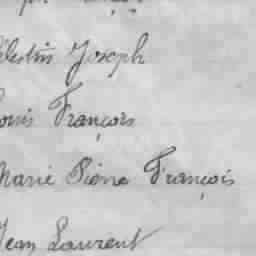 Célestin Joseph
Louis François
Marie Pierre François
Jean Laurent